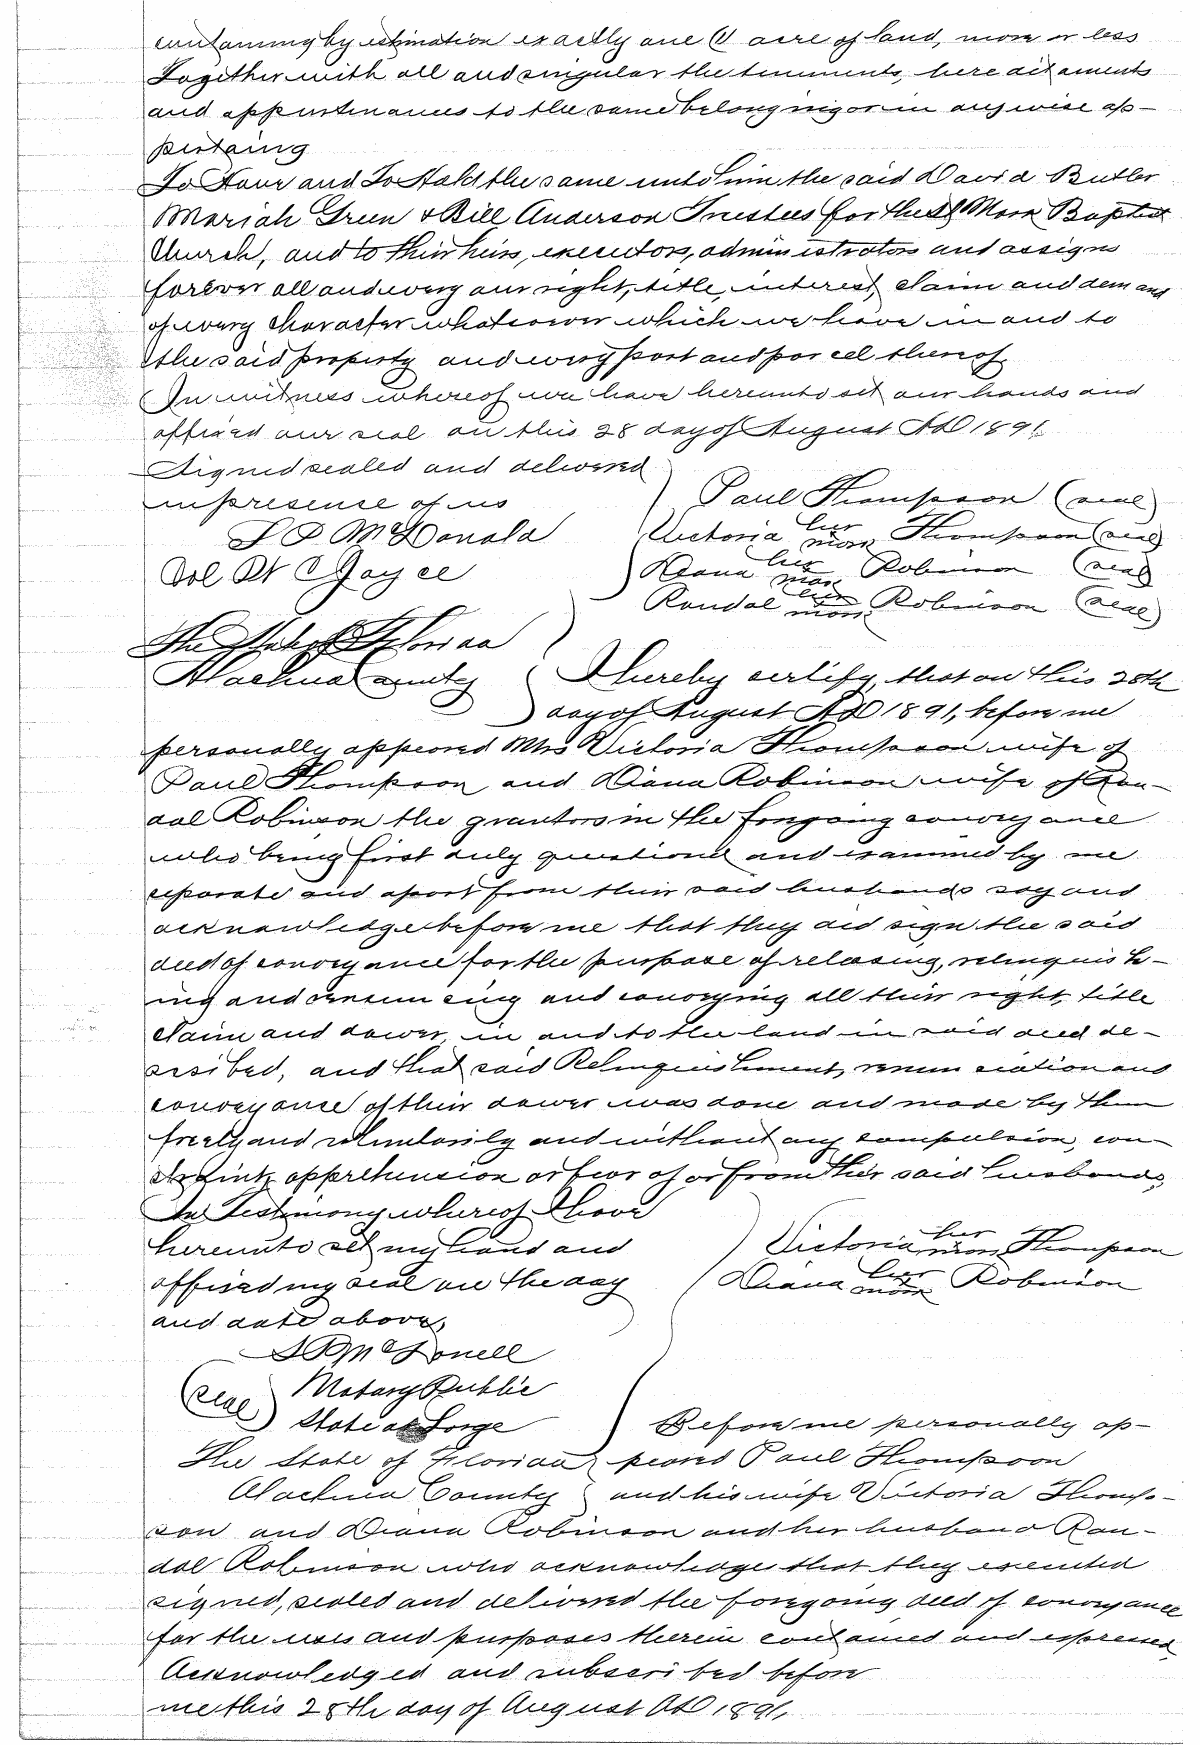 containing by estimation exactly one (1) acre of land, more or less
Together with all and singular the tenments, hereditaments
and appurtenances to the same belonging or in anywise ap-
pertaing
To Have and To Hold the same unto him the said David Butler
Mariah Green & Bill Anderson Trustees for the Mora Baptist
Church, and to their heirs, executors, administrators and assigns
forever all and every our right, title, interest, claim and demand
of every character whatsoever which we have in and to
the said property and every part and parcel thereof
In witness whereof we have hereunto set our hands and
affixed our seal on this 28 day of August AD 1891.
Signed sealed and delivered
in presence of us
Paul Thompson (seal)
Victoria her mark Thompson (seal)
Diana her mark Robinson (seal)
Randal her mark Robinson (seal)
The State of Florida
Alachua County
I hereby certify, that on this 28th
day of August AD 1891, before me
personally appeared Mrs Victoria Thompson wife of
Paul Thompson and Diana Robinson wife of Ran-
dal Robinson the grantors in the foregoing conveyance
who being first duly questioned and examined by me
separate and apart from their said husbands say and
acknowledge before me that they did sign the said
deed of conveyance for the purpose of releasing, relinquish-
ing and renouncing and conveying all their right, title
claim and dower, in and to the land in said deed de-
scribed, and that said Relinquishment, renunciation and
conveyance of their dower was done and made by them
freely and voluntarily and without any compulsion, con-
straint, apprehension or fear of or from their said husbands,
In Testimony whereof I have
hereunto set my hand and
affixed my seal on the day
and date above.
Victoria her mark Thompson
Diana her mark Robinson
(seal) Notary Public
State at Large
The State of Florida
Alachua County
Before me personally ap-
peared Paul Thompson
and his wife Victoria Thomp-
son and Diana Robinson and her husband Ran-
dal Robinson who acknowledge that they executed
signed, sealed and delivered the foregoing deed of conveyance
for the uses and purposes therein contained and expressed
Acknowledged and subscribed before
me this 28th day of August AD 1891.